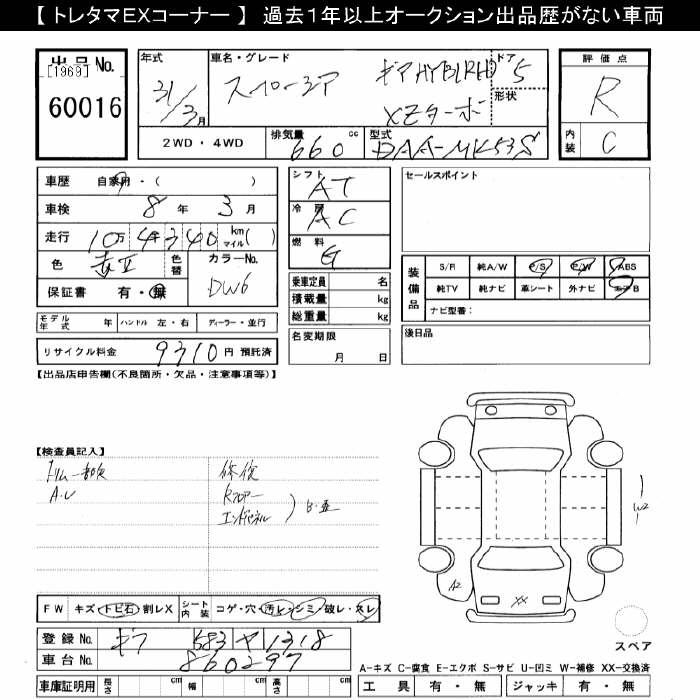 【 トレタマEXコーナー 】 過去1年以上オークション出品歴がない車両
出品No.
[1969]
60016
年式
31/3月
車名・グレード
スペーシア ギアHYBRID
XZターボ
ドア
5
形状
2WD・4WD
排気量
660 cc
型式
DAA-MK53S
評価点
R
内装
C
車歴 自家用・( )
車検 8年3月
走行 10万4千340 km マイル( )
色 赤Ⅱ 色替 カラーNo.
DW6
保証書 有・無
モデル年式 年 ハンドル 左・右 ディーラー・並行
リサイクル料金 9310 円 預託済
シフト
AT
冷房
AC
燃料
G
乗車定員 名
積載量 kg
総重量 kg
名変期限
月 日
セールスポイント
装備品
S/R 純A/W P/S P/W ABS
純TV 純ナビ 革シート 外ナビ エアB
ナビ型番:
後日品
【出品店申告欄(不良箇所・欠品・注意事項等)】
【検査員記入】
トリム一部欠
A・U
修復
Rフロアー
エンドパネル
W2
A2
XX
スペア
FW キズ・トビ石・割レX
シート内装 コゲ・穴・汚レ・シミ・破レ・スレ
登録No. ギフ 583 ヤ 1318
車台No. 860297
車庫証明用 長さ cm 幅 cm 高さ cm
A-キズ C-腐食 E-エクボ S-サビ U-凹ミ W-補修 XX-交換済
工具 有・無 ジャッキ 有・無